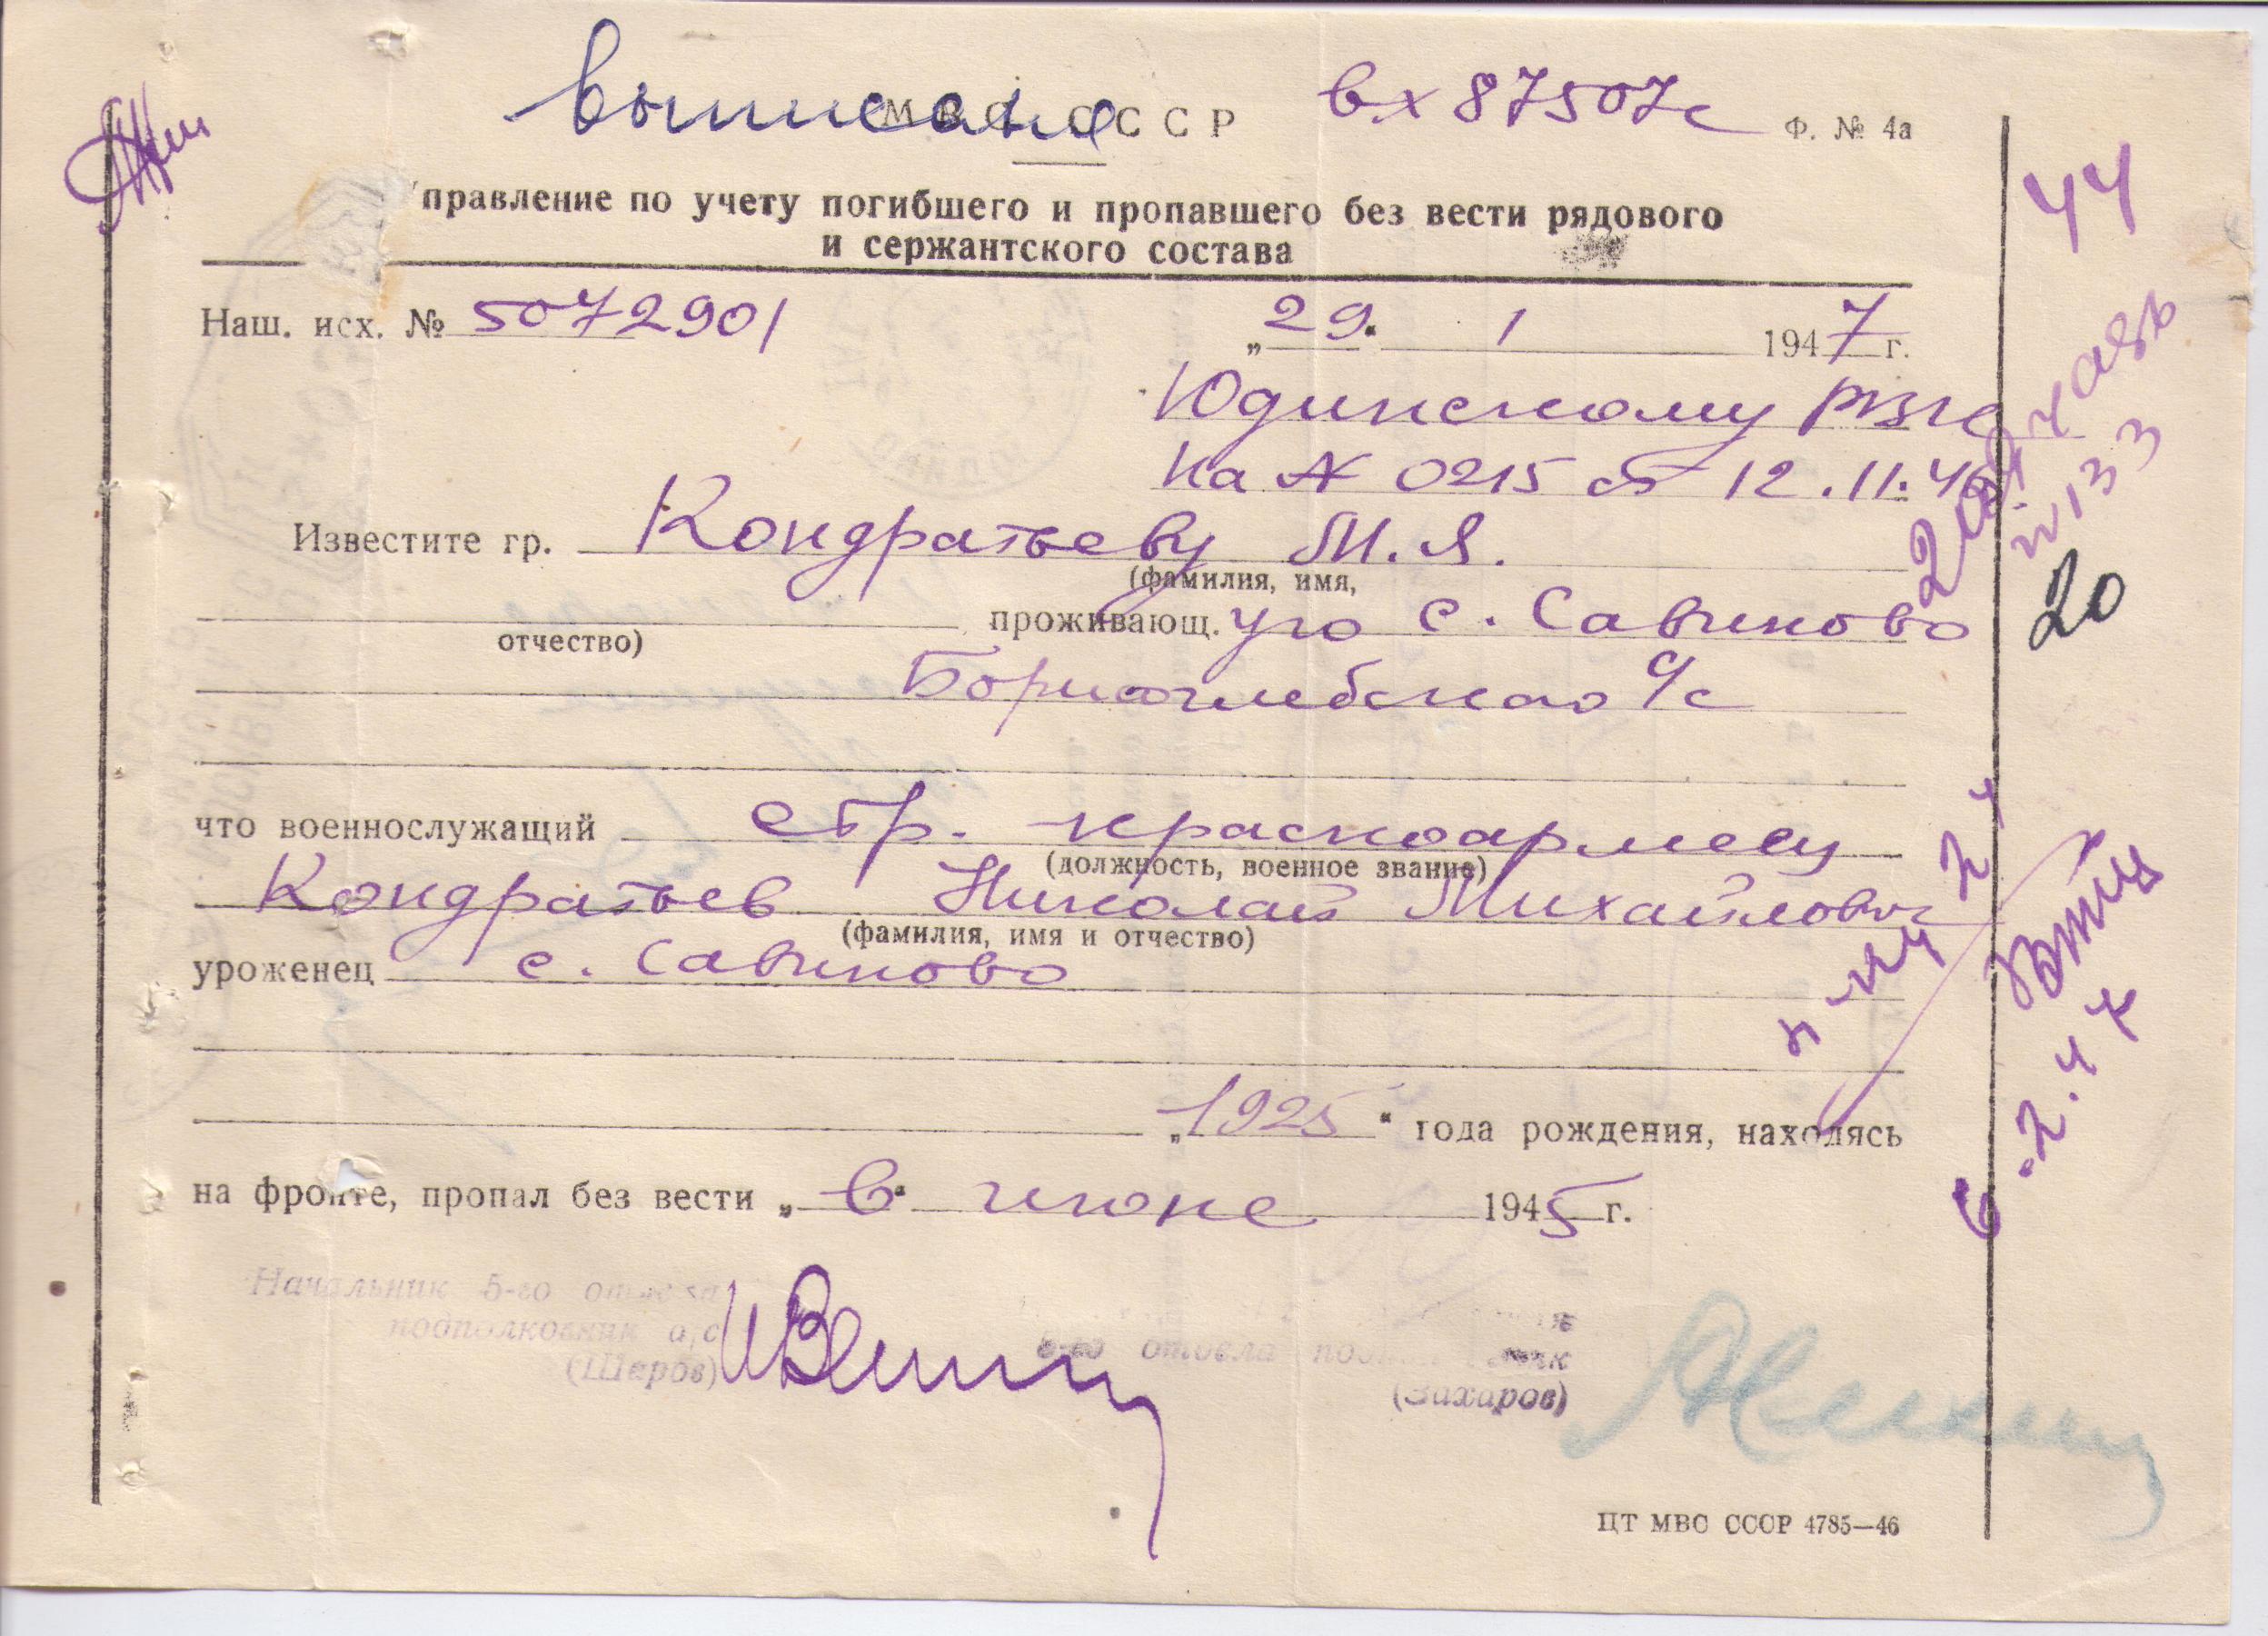 выписана
МВС СССР
вх 87507с
Ф. № 4а
44
Управление по учету погибшего и пропавшего без вести рядового
и сержантского состава
Наш. исх. № 5072901
„29“ 1 1947 г.
Юдинскому РВК
на № 0215 от 12.11.46
№133
20
Известите гр. Кондратьеву М.Я.
(фамилия, имя,
отчество) проживающ. ую с. Савиново
Борисоглебского с/с
что военнослужащий стр. красноармеец
(должность, военное звание)
Кондратьев Николай Михайлович
(фамилия, имя и отчество)
уроженец с. Савиново
6.2.47
„1925“ года рождения, находясь
на фронте, пропал без вести „в“ июне 1945 г.
Начальник 5-го отдела
подполковник а/с
(Шеров)
5-го отдела подполковник
(Захаров)
ЦТ МВС СССР 4785—46